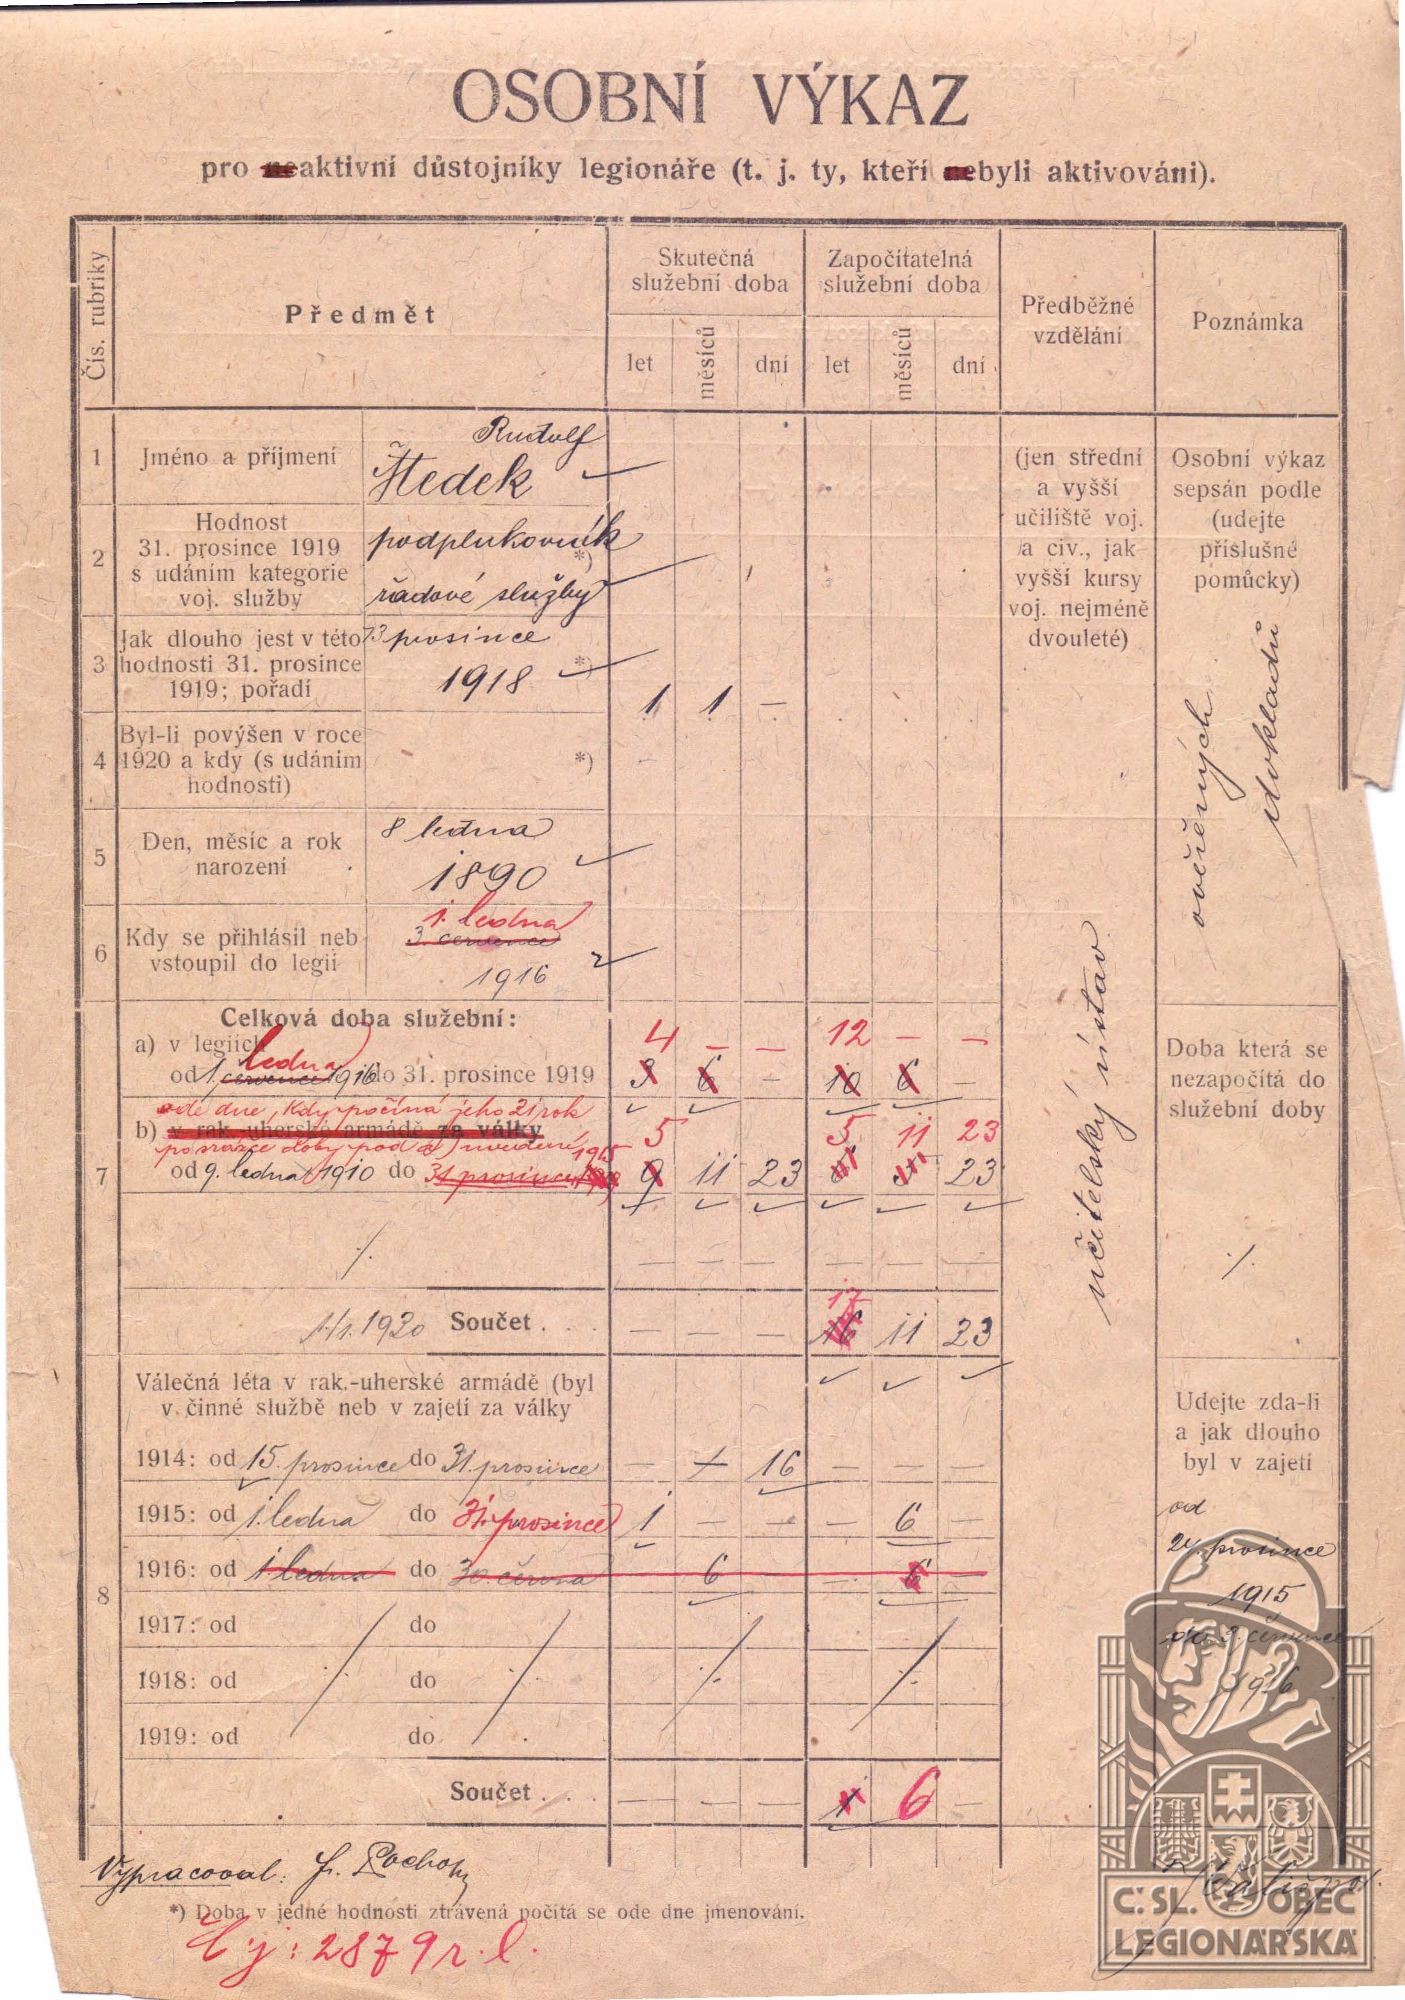 OSOBNÍ VÝKAZ
pro neaktivní důstojníky legionáře (t. j. ty, kteří nebyli aktivováni).
Čís. rubriky
Předmět
Skutečná
služební doba
Započítatelná
služební doba
let měsíců dní let měsíců dní
Předběžné
vzdělání
Poznámka
1 Jméno a příjmení
Rudolf
Štedek
(jen střední
a vyšší
učiliště voj.
a civ., jak
vyšší kursy
voj. nejméně
dvouleté)
učitelský ústav
Osobní výkaz
sepsán podle
(udejte
příslušné
pomůcky)
ověřených
dokladů
2 Hodnost
31. prosince 1919
s udáním kategorie
voj. služby
podplukovník *)
řadové služby
3 Jak dlouho jest v této
hodnosti 31. prosince
1919; pořadí
prosince
1918 *)
1 1 —
4 Byl-li povýšen v roce
1920 a kdy (s udáním
hodnosti)
*)
5 Den, měsíc a rok
narození
8 ledna
1890
6 Kdy se přihlásil neb
vstoupil do legií
1. ledna
3. července
1916
7 Celková doba služební:
a) v legiích
4 — — 12 — —
ledna
od 1. července 1916 do 31. prosince 1919 3 6 — 10 6 —
ode dne, kdy počíná jeho 21 rok
b) v rak.-uherské armádě za války 5 5 11 23
po srážce doby pod a) uvedené 1915
od 9. ledna 1910 do 31 prosince 9 11 23 23
Doba která se
nezapočítá do
služební doby
1/1. 1920 Součet . . . — — — 17 16 11 23
8 Válečná léta v rak.-uherské armádě (byl
v činné službě neb v zajetí za války
1914: od 15. prosince do 31. prosince — — 16 — — —
1915: od 1. ledna do 31. prosince 1 — — — 6 —
1916: od 1. ledna do 30. června 6 — 6 —
1917: od do
1918: od do
1919: od do
Součet . . . — — — 1 6 —
Udejte zda-li
a jak dlouho
byl v zajetí
od
24. prosince
1915
do 3. července
1916
Vypracoval:
*) Doba v jedné hodnosti ztrávená počítá se ode dne jmenování.
Č. j.: 2879 r. l.
Č. SL. OBEC
LEGIONÁŘSKÁ